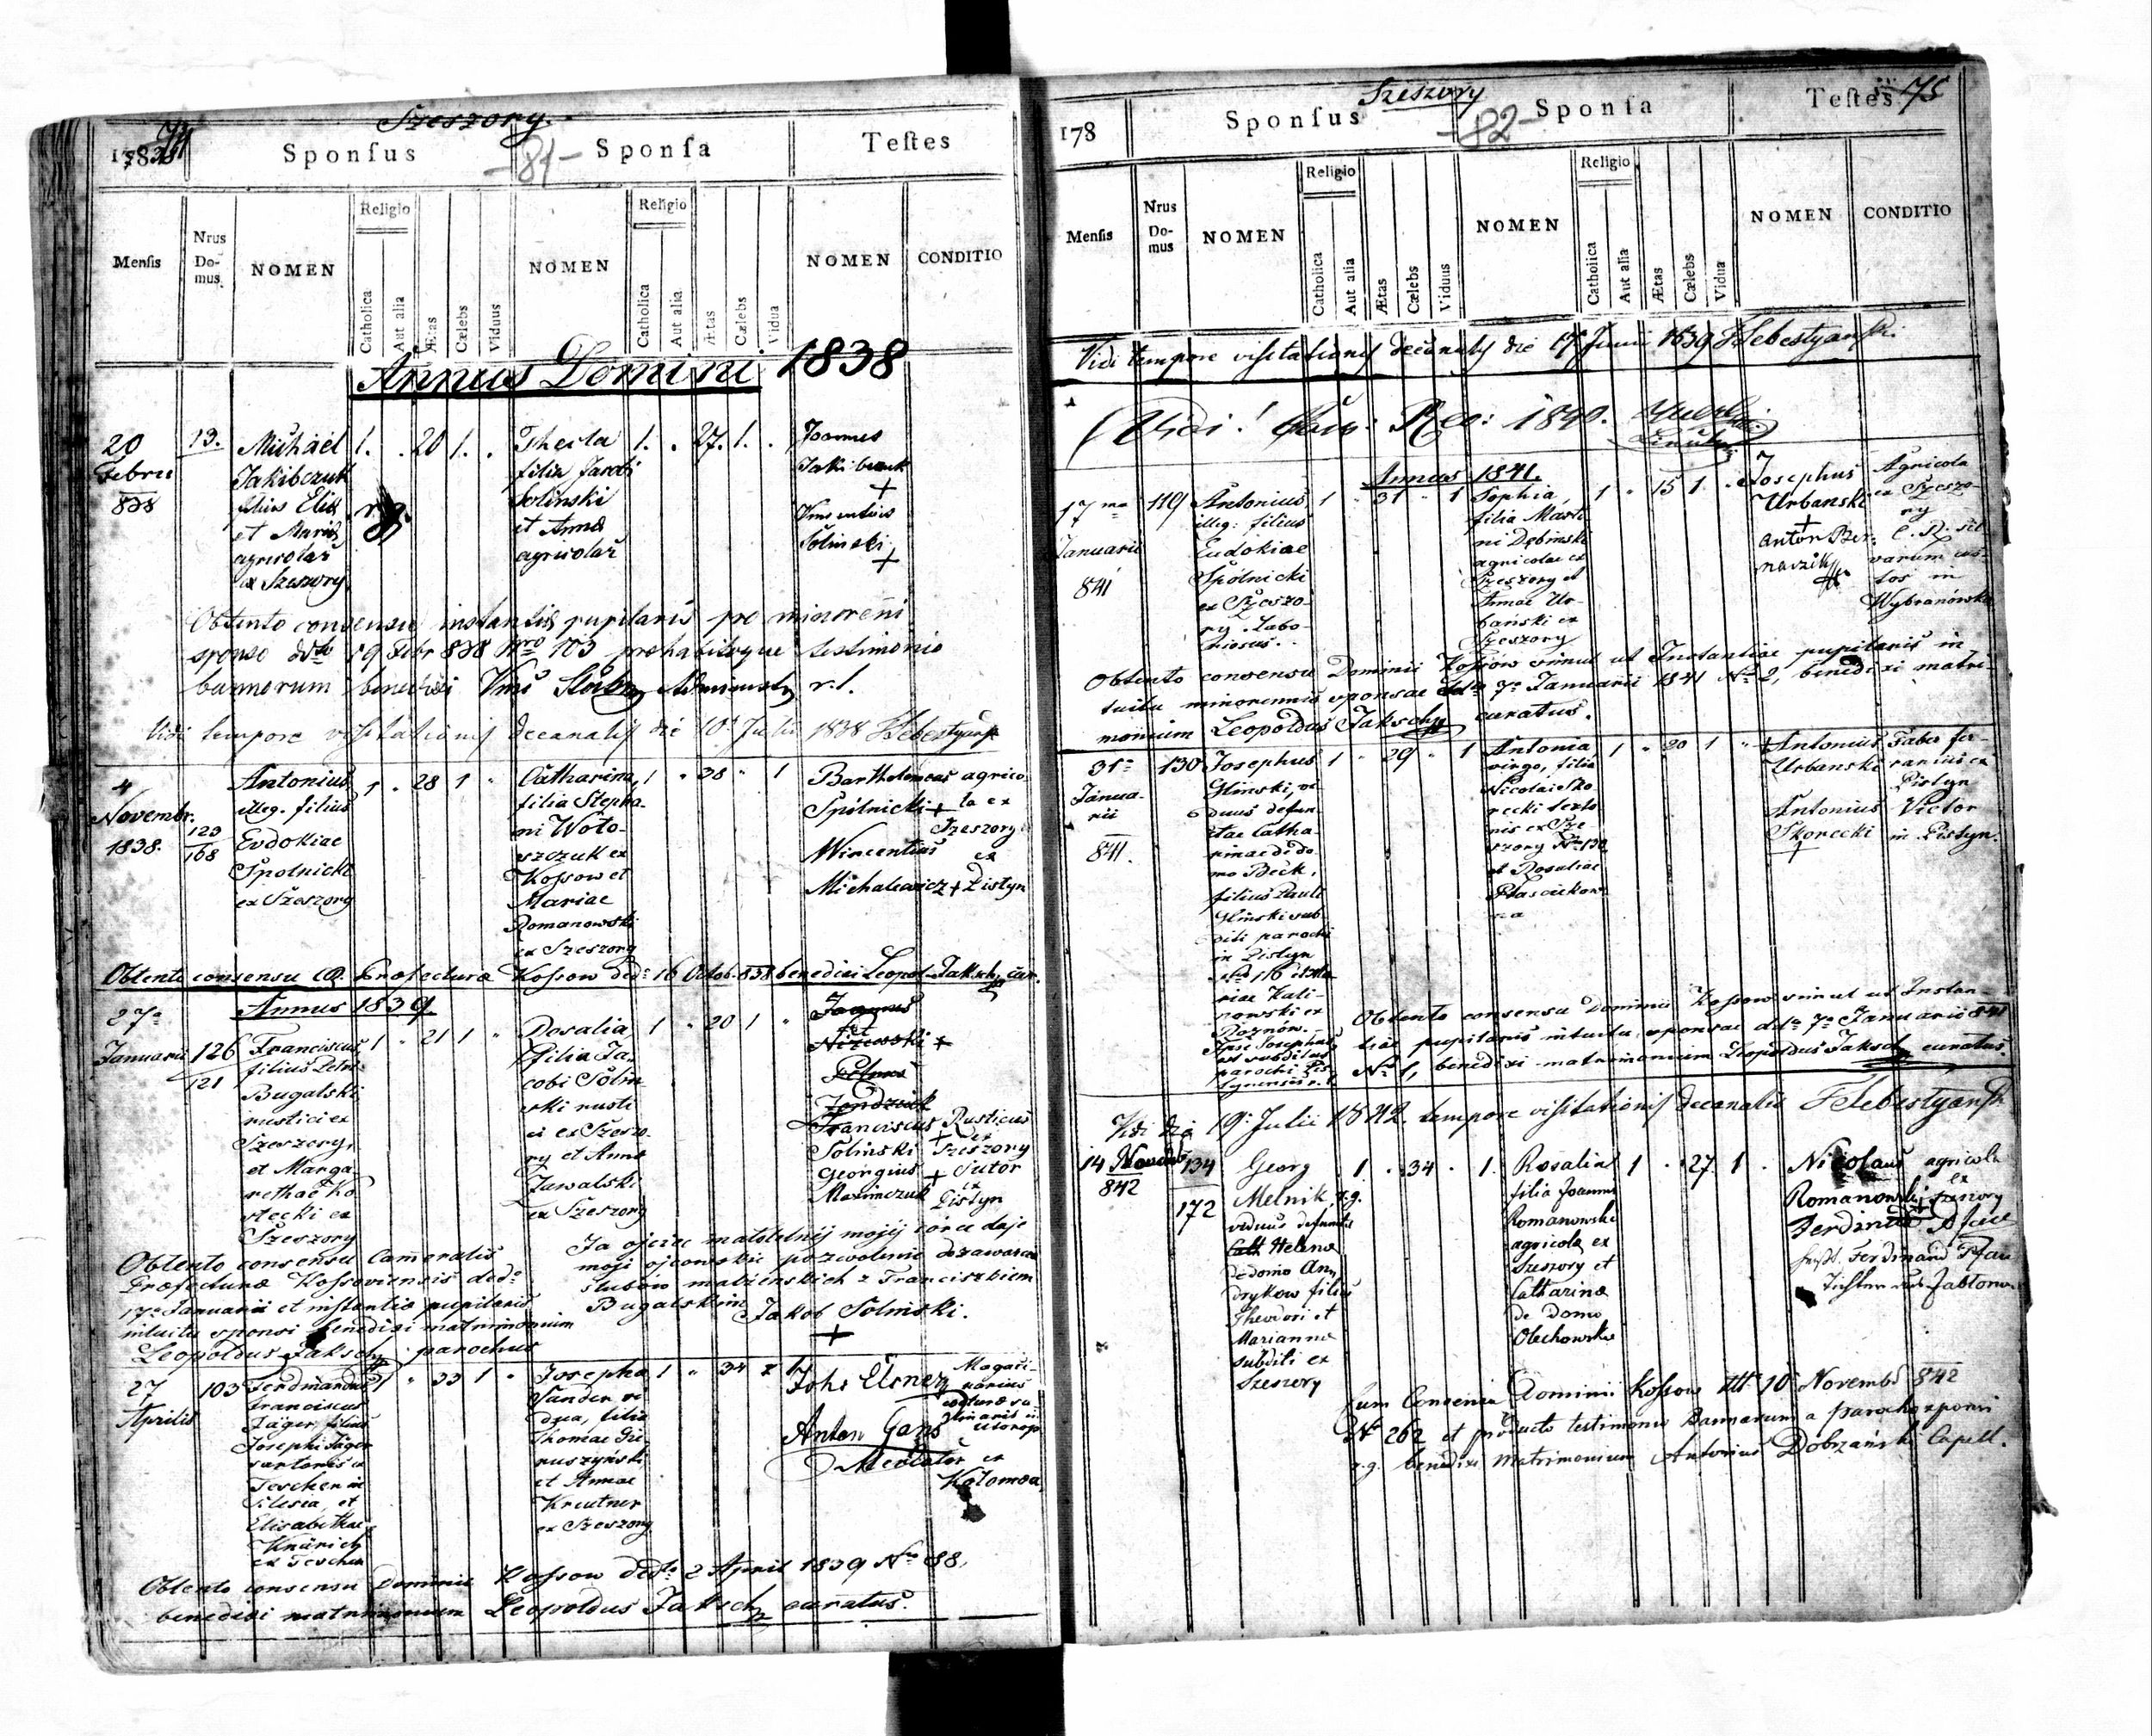 Szeszory.
1838
Sponſus
-81-
Sponſa
Teſtes
Menſis
Nrus Do-mus
NOMEN
Religio
Catholica
Aut alia
Ætas
Cælebs
Viduus
NOMEN
Religio
Catholica
Aut alia
Ætas
Cælebs
Vidua
NOMEN
CONDITIO
Annus Domini 1838
20
Febru
838
19.
Michael
Jakibczuk
filius Eliæ
et Mariæ
agricolar
ex Szeszory
1. . 20 1. .
r. g.
Thecla
filia Jacobi
Solinski
et Anna
agricolar
1. . 27. 1. .
Joannes
Jakibczuk
+
Vincentius
Solinski
+
Obtento consensu instantiæ pupilaris pro minoreni
sponso ddto 19 Febr 838 Nro 103 prohabitoque testimonio
bannorum benedixi Administ r. l.
Vidi tempore visitationis decanalis die 10 Julii 1838
4
Novembr.
1838.
129
168
Antonius
illeg. filius
Evdokiae
Spolnicki
ex Szeszory
1 " 28 1 "
Catharina,
filia Stepha-
ni Woło-
szczuk ex
Kossow et
Mariae
Romanowski
ex Szeszory
1 " 38 " 1
Bartholomeus
Spolnicki +
agrico-
la ex
Szeszory
Wincentius
Michalewicz +
ex
Pistyn
Obtento consensu C. R. Præfectura Kossow dedo 16 Octob. 838 benedixi Leopol. Jaksch, cur.
Annus 1839.
27a
Januarii
126
121
Franciscus
filius Petri
Bugalski
rustici ex
Szeszory,
et Marga-
rethae Ko-
stecki ex
Szeszory
1 " 21 1 "
Rosalia
filia Ja-
cobi Solin-
ski rusti-
ci ex Szeszo-
ry et Anna
Zawalski
ex Szeszory
1 " 20 1 "
Franciscus
Solinski +
Georgius +
Maximczuk
Rusticus
ex
Szeszory
Sutor
ex
Pistyn
Obtento consensu Cameralis
Præfecturæ Kossoviensis dedo
17a Januarii et instantiæ pupilaris
intuitu sponsi benedixi matrimonium
Leopoldus Jaksch, parochus
Ja ojciec małoletnij mojij córce daje
moje ojcowskie pozwolenie do zawarcia
slubów małżenskich z Franciszkiem
Bugalskim Jakob Solinski.
+
27
Aprilis
103
Ferdinandus
Franciscus
Jäger, filius
Josephi Jäger
sartoris ex
Teschen in
Silesia, et
Elisabethae
Knärich
ex Teschen
1 " 33 1 "
Josepha
Sander vi-
dua, filia
Thomae Gri-
nuszyński
et Annae
Kreutner
ex Szeszory
1 " 34 " 1
Joh: Elsner
Anton Gans
ex
Kołomea
Obtento consensu Dominii Kossow dedto 2 April 1839 No 88,
benedixi matrimonium Leopoldus Jaksch curatus.
Szeszory
75
178
Sponſus
-82-
Sponſa
Teſtes
Menſis
Nrus Do-mus
NOMEN
Religio
Catholica
Aut alia
Ætas
Cælebs
Viduus
NOMEN
Religio
Catholica
Aut alia
Ætas
Cælebs
Vidua
NOMEN
CONDITIO
Vidi tempore visitationis decanalis die 17 Junii 1839
Vidi! 1840.
Annus 1841.
17ma
Januarii
841
119
Antonius,
illeg: filius
Eudokiae
Spólnicki
ex Szeszo-
ry. Labo-
riosus.
1 " 31 " 1
Sophia,
filia Marti-
ni Dębinski
agricolae ex
Szeszory et
Annae Ur-
bański ex
Szeszory
1 " 15 1 "
Josephus
Urbanski
+
Anton Ber-
naczik
Agricola
ex Szeszo-
ry
C. R. sil-
varum cus-
tos in
Wybranówka
Obtento consensu Dominii Kossów simul ut Instantiae pupilaris in-
tuitu minorennis sponsae ddto 7a Januarii 1841 No 2, benedixi matri-
monium Leopoldus Jaksch curatus.
31a
Janua-
rii
841.
130
Josephus
Glinski, vi-
duus defun-
ctae Catha-
rinae de do-
mo Beck,
filius Pauli
Glinski sub-
diti parochi
in Pistyn
No 116 et Ma-
riae Kali-
nowski ex
Roznów.
Ipse Josephus
est subditus
parochi Pis-
tynensis r. l.
1 " 29 " 1
Antonia
virgo, filia
Nicolai Sko-
recki texto-
ris ex Sze-
szory No 130
et Rosaliae
1 " 20 1 "
+ Antonius
Urbanski
Antonius
Skorecki
+
Faber fer-
rarius ex
Pistyn
Victor
in Pistyn.
Obtento consensu Dominii Kossow simul ut Instan-
tiae pupilaris intuitu sponsae ddto 7a Januarii 841
No 1, benedixi matrimonium Leopoldus Jaksch curatus.
Vidi die 19 Julii 1842. tempore visitationis decanalis
14 Novembr
842
134
172
Georg
Melnik, r. g.
viduus defunctæ
Helenæ
de domo An-
drykow filius
Theodori et
Marianna
subditi ex
Szeszory
1 . 34 . 1.
Rosalia
filia Joannis
Romanowski
agricolæ ex
Szeszory et
Catharinæ
de Domo
Olechowska
1 . 27. 1 .
Nicolaus
Romanowski +
agricola
ex
Szeszory
Ferdinand
Cum Consensu Dominii Kossow 10 Novembr 842
No 262 et producto testimonio Bannorum a parocho sponsi
r. g. benedixi Matrimonium Antonius Dobrzański Capell.